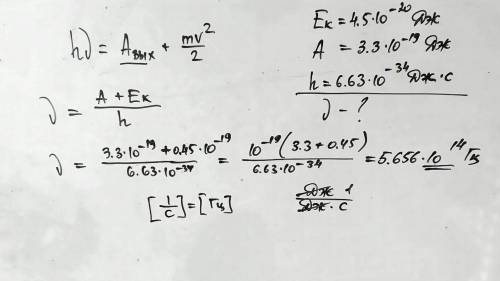 hν = Aвых + mv²/2
ν = (A + Eк)/h
Eк = 4.5·10⁻²⁰ Дж
A = 3.3·10⁻¹⁹ Дж
h = 6.63·10⁻³⁴ Дж·с
ν - ?
ν = (3.3·10⁻¹⁹ + 0.45·10⁻¹⁹)/(6.63·10⁻³⁴) = 10⁻¹⁹(3.3 + 0.45)/(6.63·10⁻³⁴) = 5.656·10¹⁴ Гц
[1/с] = [Гц]
Дж 1/Дж·с